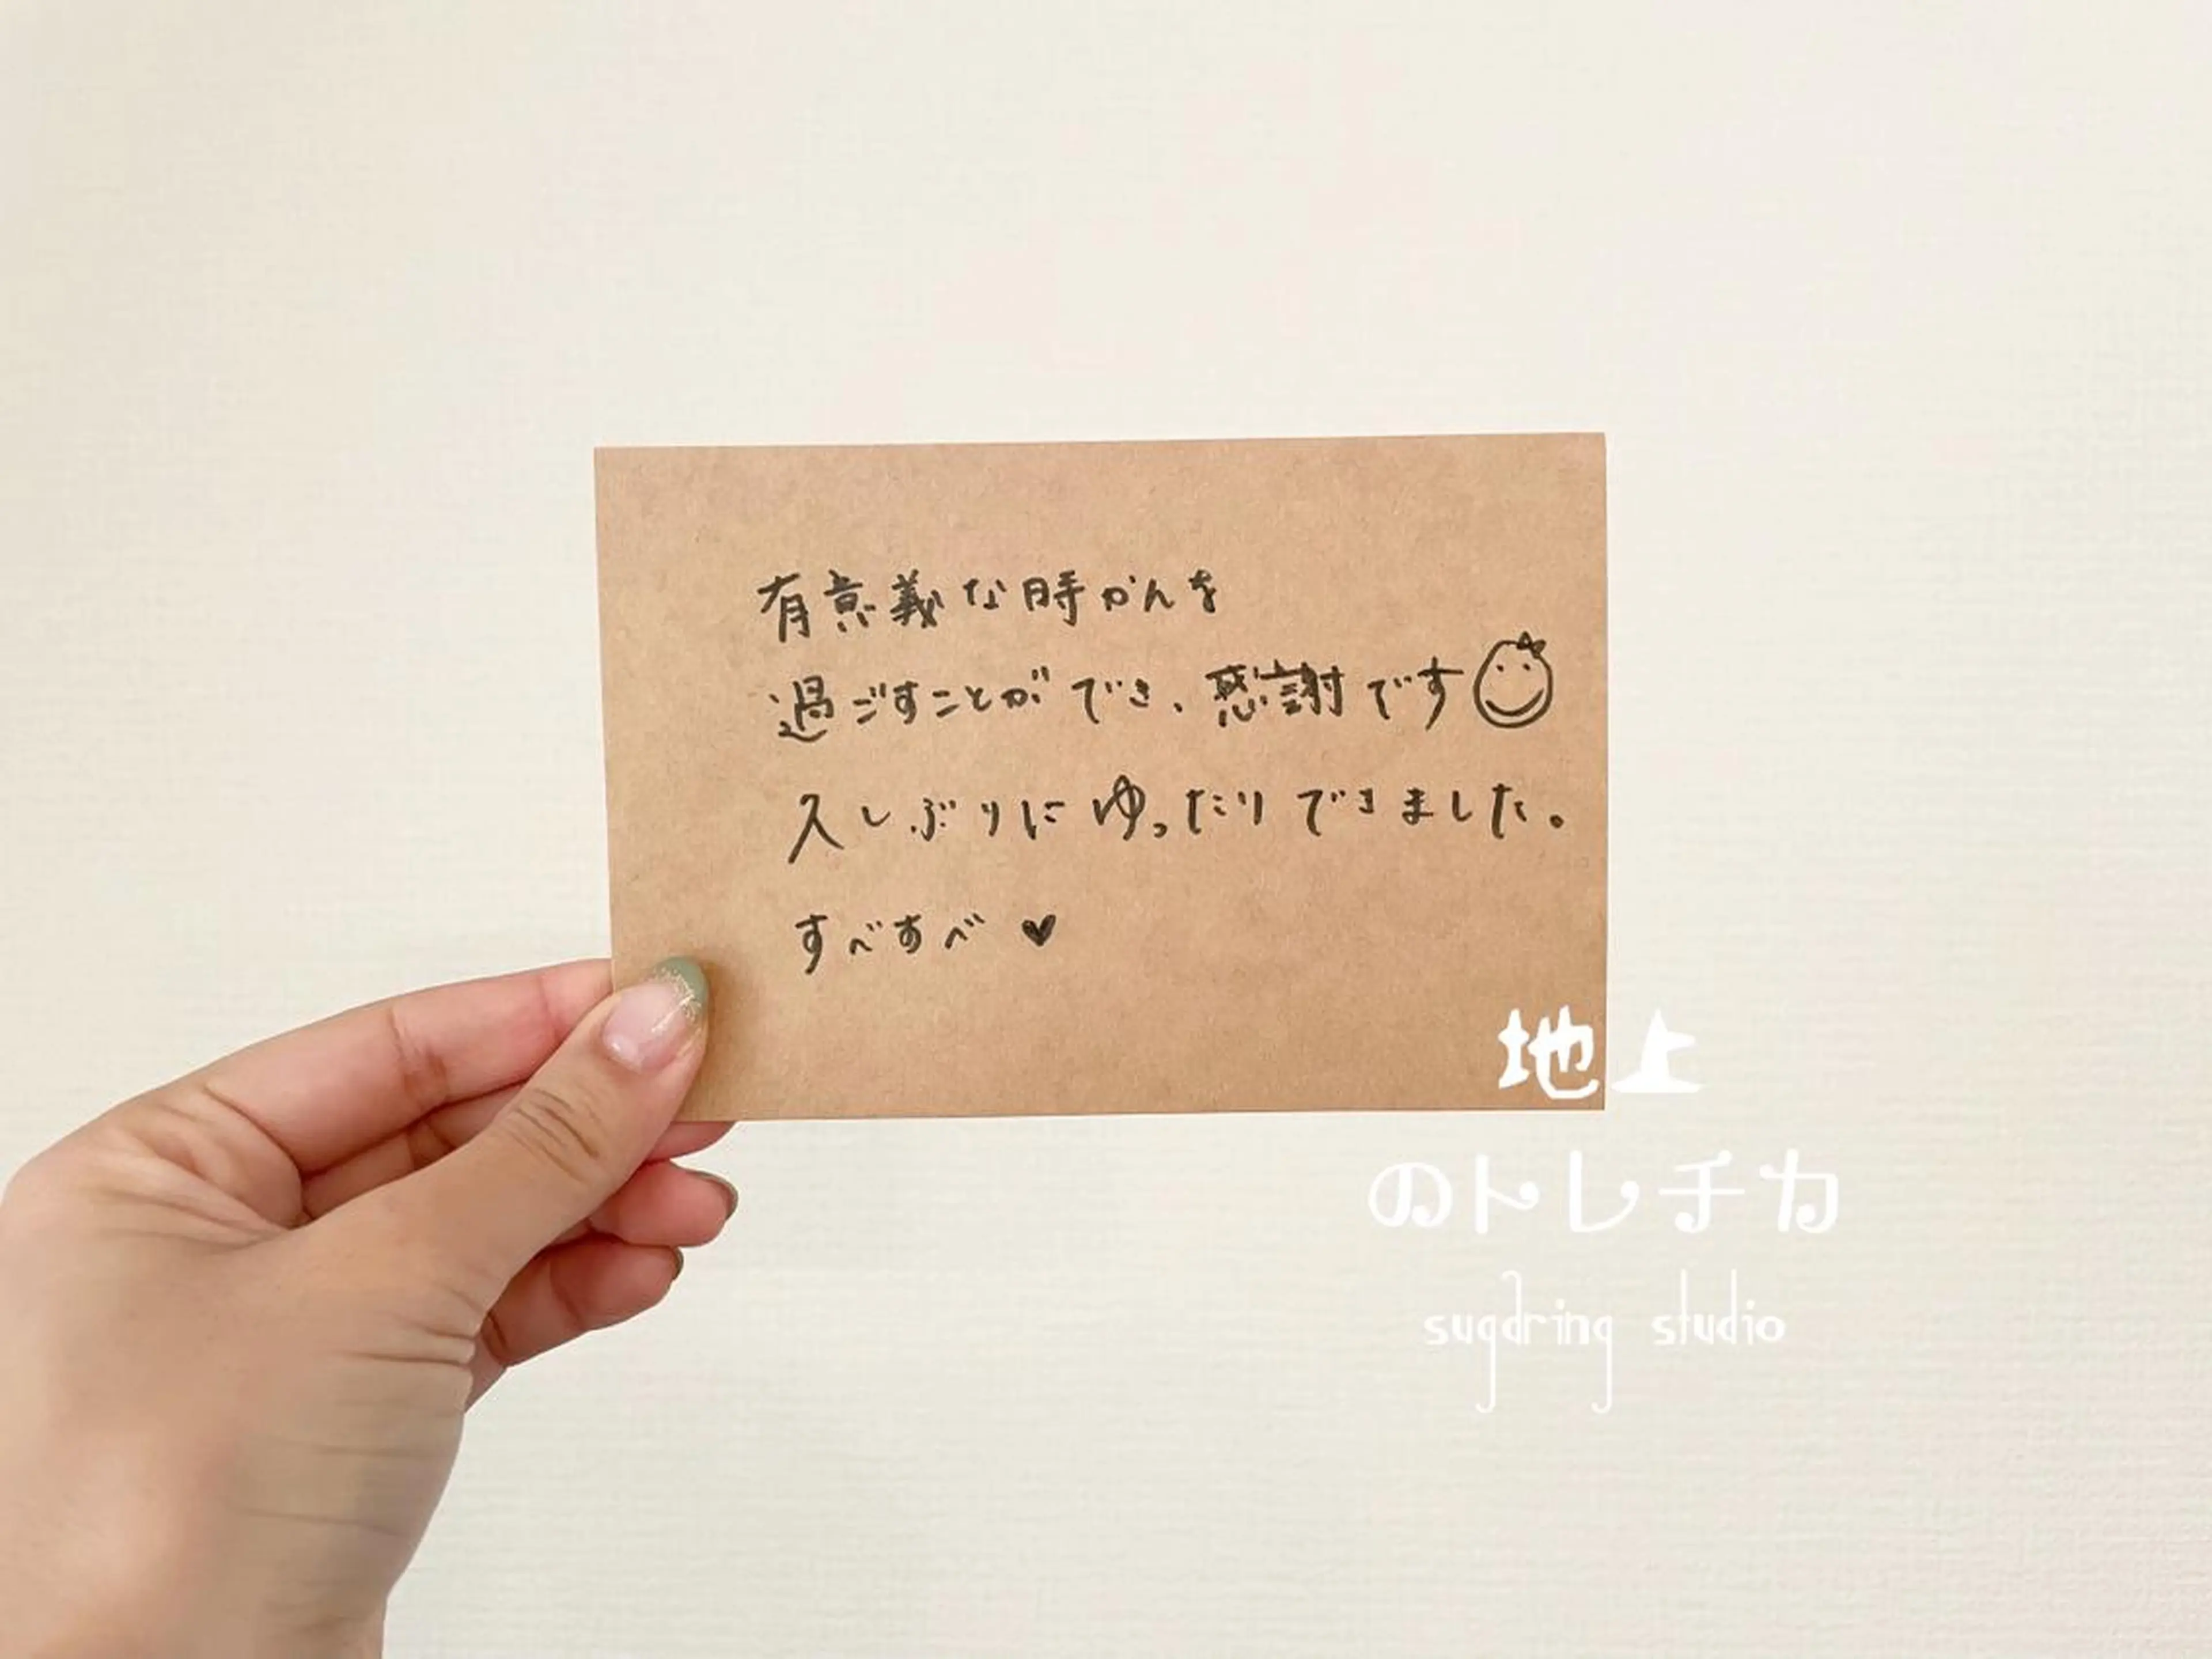 有意義な時かんを
過ごすことができ、感謝です
久しぶりにゆったりできました。
すべすべ ♥
地上
のトレチカ
sugaring studio